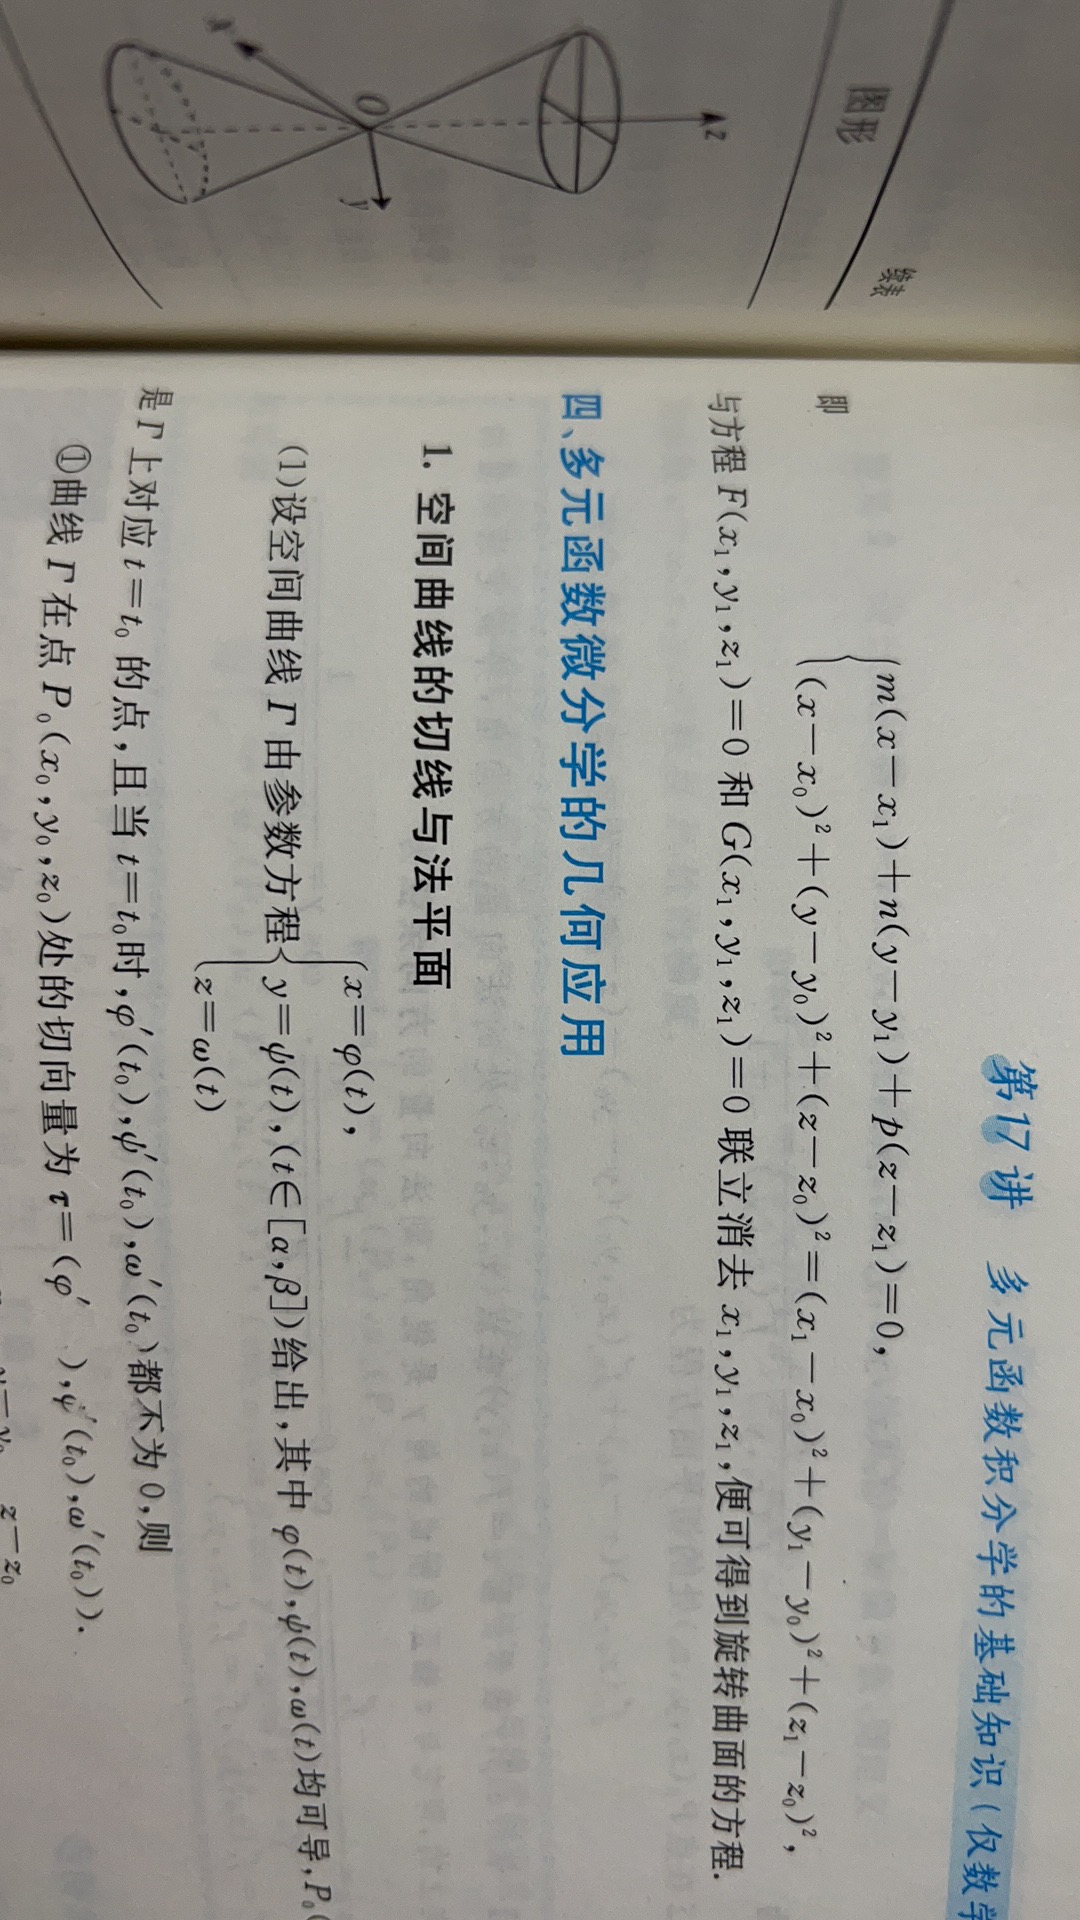 续表
图形
z
O
y
第17讲 多元函数积分学的基础知识(仅数学
即
{m(x-x₁)+n(y-y₁)+p(z-z₁)=0,
(x-x₀)²+(y-y₀)²+(z-z₀)²=(x₁-x₀)²+(y₁-y₀)²+(z₁-z₀)²,
与方程 F(x₁,y₁,z₁)=0 和 G(x₁,y₁,z₁)=0 联立消去 x₁,y₁,z₁,便可得到旋转曲面的方程.
四、多元函数微分学的几何应用
1. 空间曲线的切线与法平面
x=φ(t),
(1)设空间曲线 Γ 由参数方程{y=ψ(t),(t∈[α,β])给出,其中 φ(t),ψ(t),ω(t)均可导,P₀(
z=ω(t)
是 Γ 上对应 t=t₀ 的点,且当 t=t₀时,φ′(t₀),ψ′(t₀),ω′(t₀)都不为 0,则
①曲线 Γ 在点 P₀(x₀,y₀,z₀)处的切向量为 τ=(φ′ ),ψ′(t₀),ω′(t₀)).
y-y₀ z-z₀